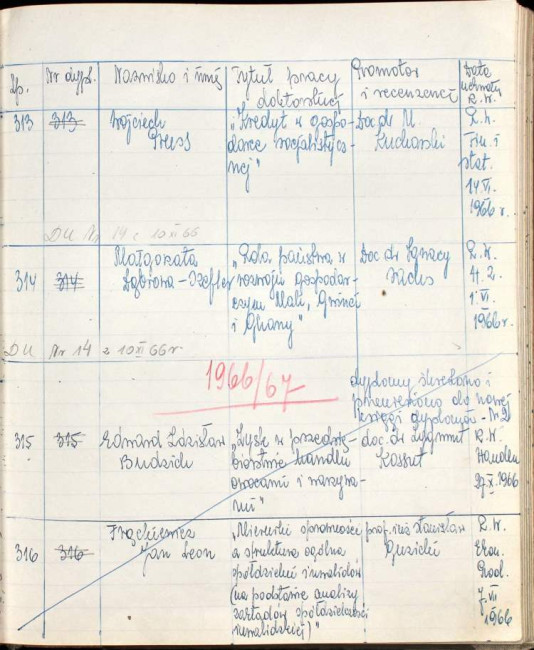 Lp. Nr dypl. Nazwisko i imię Tytuł pracy doktorskiej Promotor i recenzenci Data uchwały R.W.
313 313 Wojciech
Pruss
„Kredyt w gospo-
darce socjalistycz-
nej"
Doc dr M
Kucharski
R.W.
Fin. i
Stat.
14 VI.
1966 r.
DU Nr 14 z 10 XI 66
314 314 Małgorzata
Dąbrowa-Szefler
„Rola państwa w
rozwoju gospodar-
czym Mali, Gwinei
i Ghany"
Doc dr Ignacy
Sachs
R.W.
H.Z.
1 VI.
1966 r.
DU Nr 14 z 10 XI 66 r
1966/67
dyplomy skreślono i
przeniesiono do nowej
księgi dyplomów - Nr 2
315 315 Edward Łózisław
Budzich
„Zysk w przedsię-
biorstwie handlu
owocami i warzywa-
mi"
doc. dr Zygmunt
Kossut
R.W.
Handlu
27 X. 1966
316 316 Frąckiewicz
Jan Leon
„Mierniki sprawności
a struktura ogólna
spółdzielni inwalidów
(na podstawie analizy
zakładów spółdzielczości
inwalidzkiej)"
prof. Stanisław
R.W.
Ekon.
Prod.
7 VII
1966